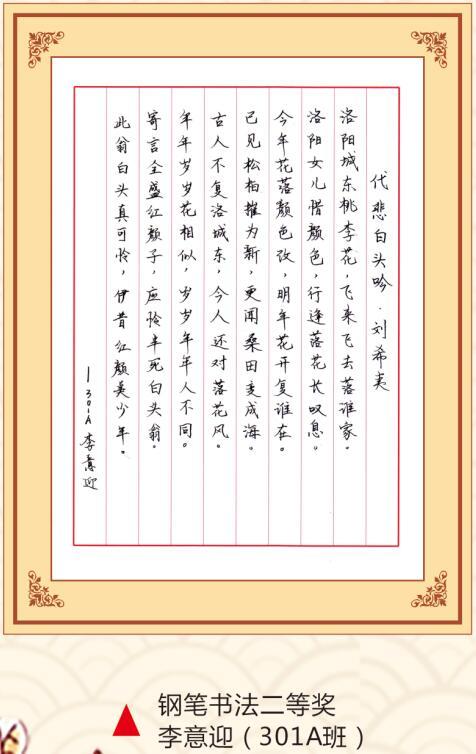 代悲白头吟·刘希夷
洛阳城东桃李花,飞来飞去落谁家。
洛阳女儿惜颜色,行逢落花长叹息。
今年花落颜色改,明年花开复谁在。
已见松柏摧为新,更闻桑田变成海。
古人不复洛城东,今人还对落花风。
年年岁岁花相似,岁岁年年人不同。
寄言全盛红颜子,应怜半死白头翁。
此翁白头真可怜,伊昔红颜美少年。
—301A 李意迎
钢笔书法二等奖
李意迎(301A班)